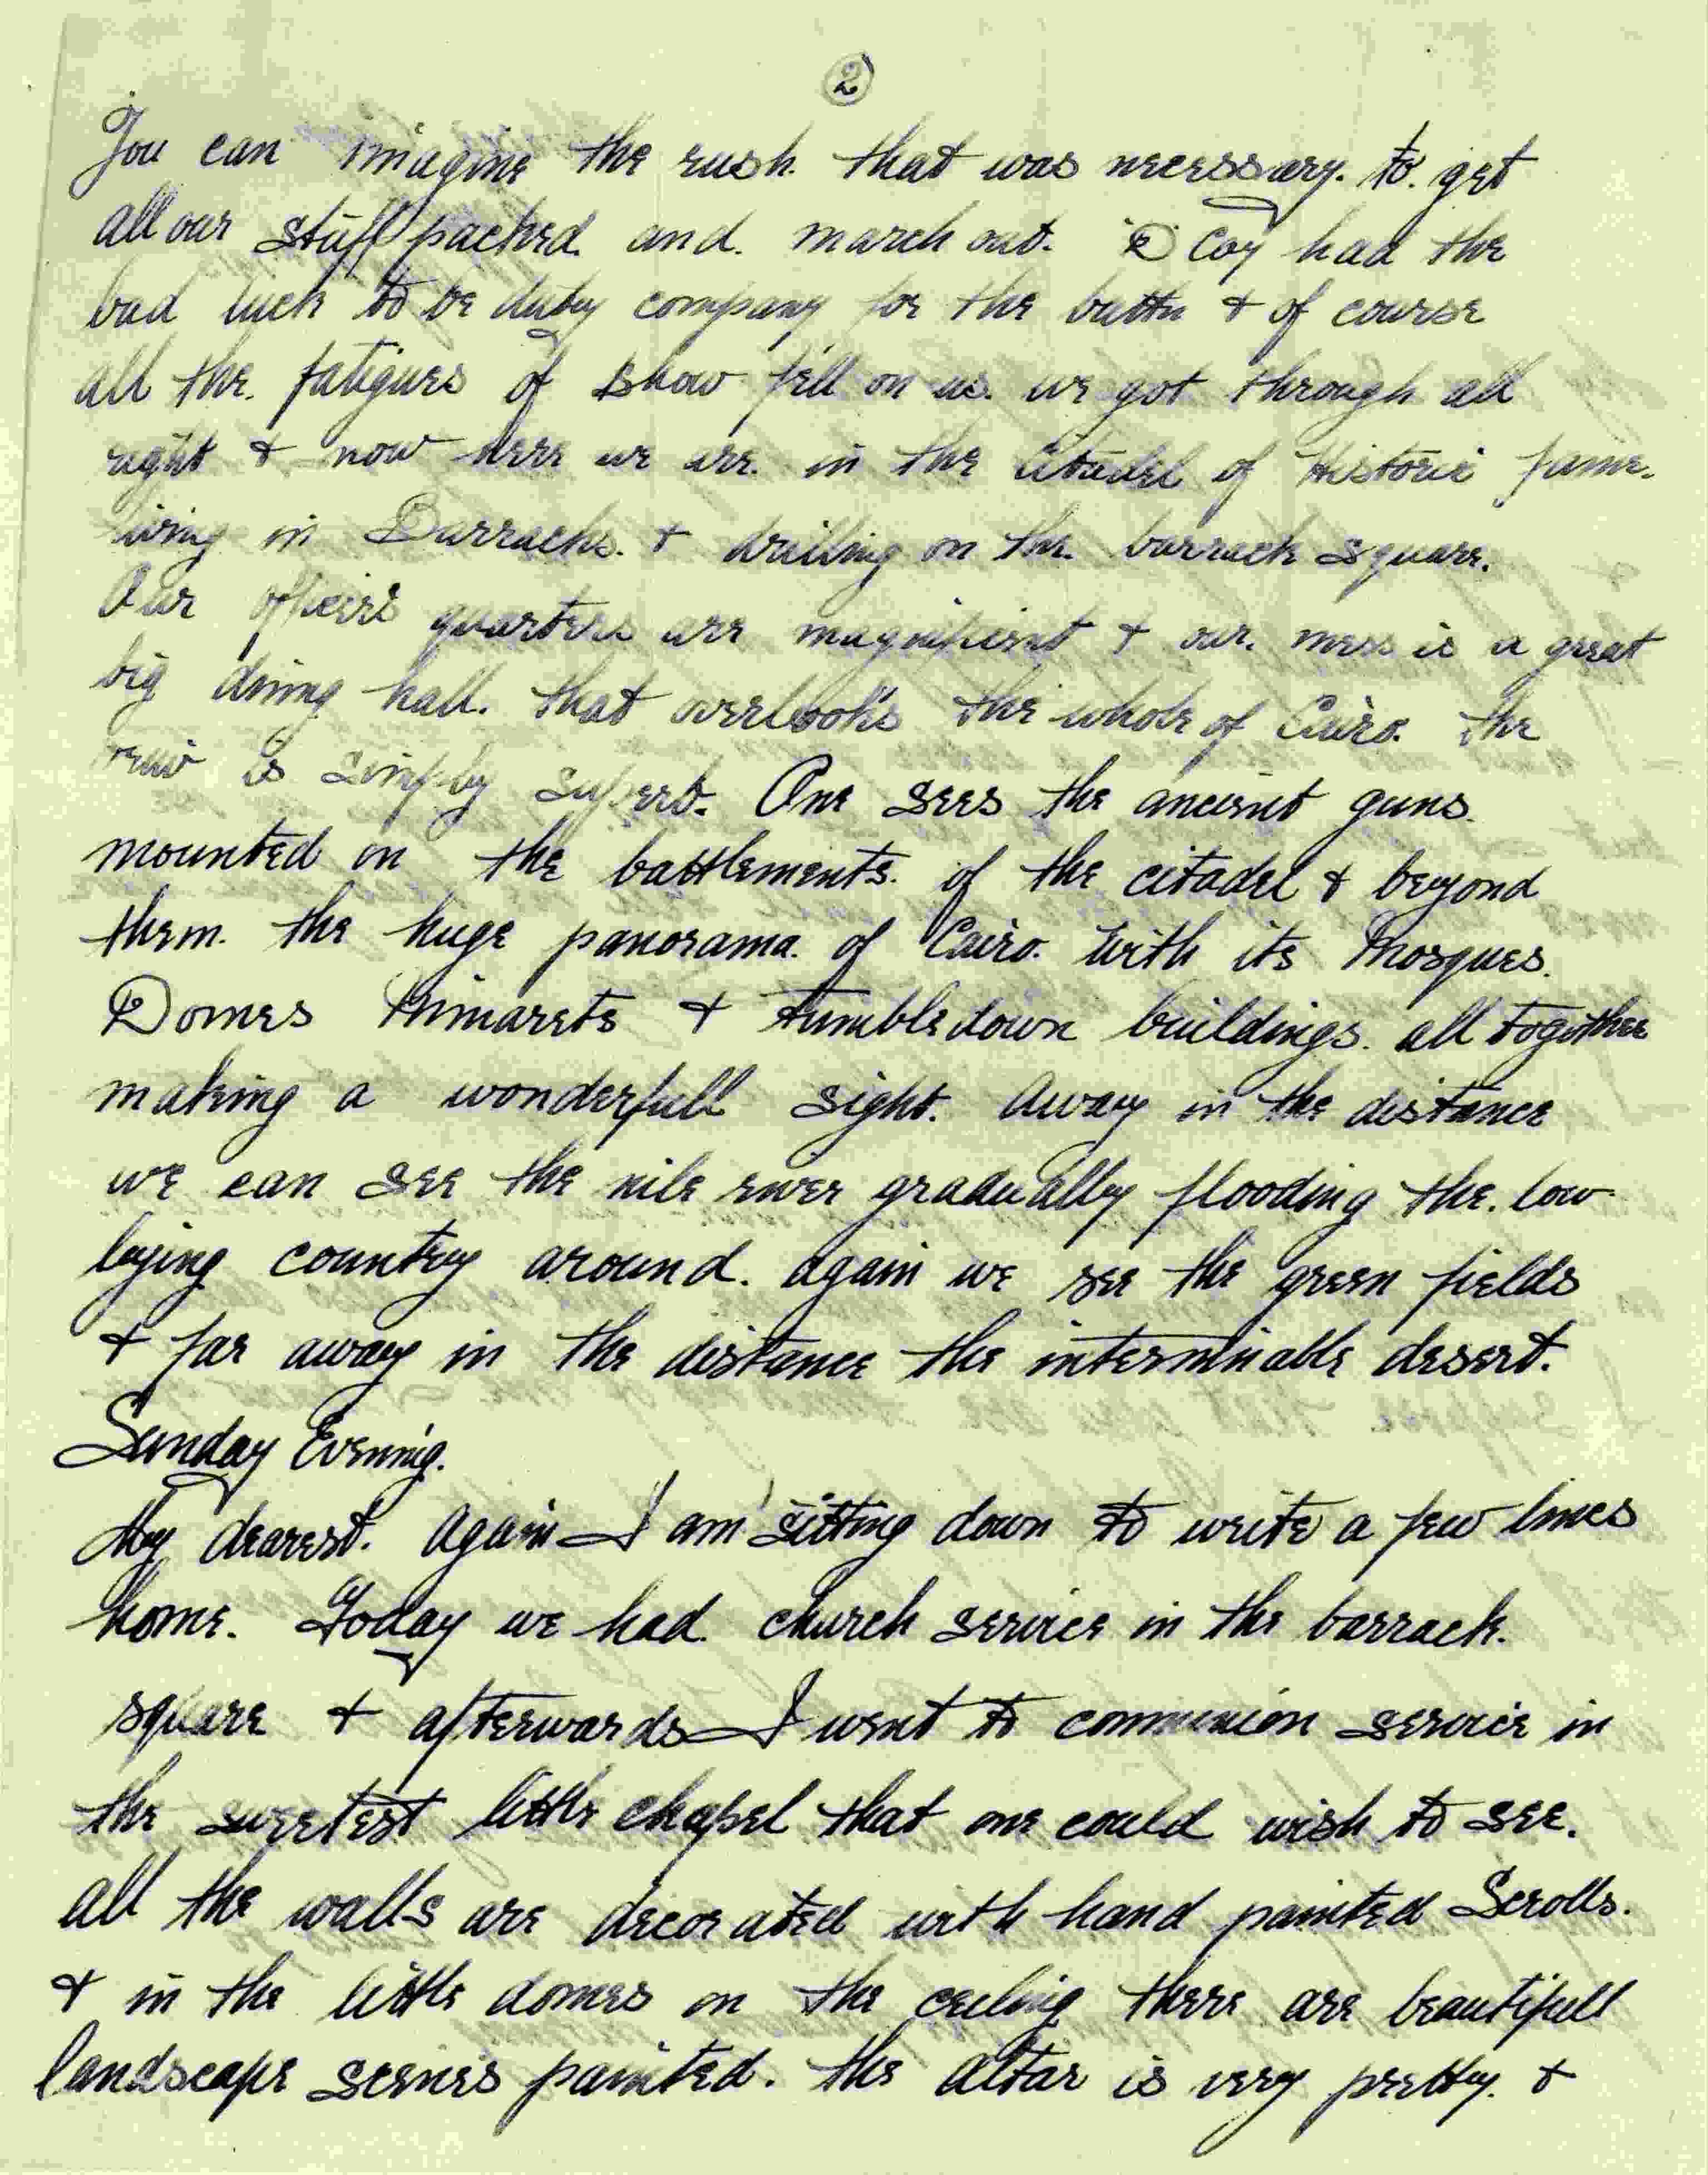 2
You can imagine the rush that was necessary. to. get
all our stuff packed and. march out. D Coy had the
bad luck to be duty company for the battn + of course
all the. fatigues of show fell on us. we got through all
right + now here we are. in the Citadel of Historic fame.
living in Barracks. + drilling on the barrack square.
Our officers quarters are magnificent + our. mess is a great
big dining hall. that overlooks the whole of Cairo. the
view is simply superb. One sees the ancient guns.
mounted on the battlements. of the citadel + beyond
them. the huge panorama. of Cairo. with its Mosques.
Domes Minarets + tumbledown buildings. all together
making a wonderfull sight. away in the distance
we can see the nile river gradually flooding the. low
lying country around. again we see the green fields
+ far away in the distance the interminable desert.
Sunday Evening.
My dearest. Again I am sitting down to write a few lines
home. Today we had church service in the barrack.
square + afterwards I went to communion service in
the sweetest little chapel that one could wish to see.
all the walls are decorated with hand painted Scrolls.
+ in the little domes on the ceiling there are beautifull
landscape scenes painted. the altar is very pretty. +